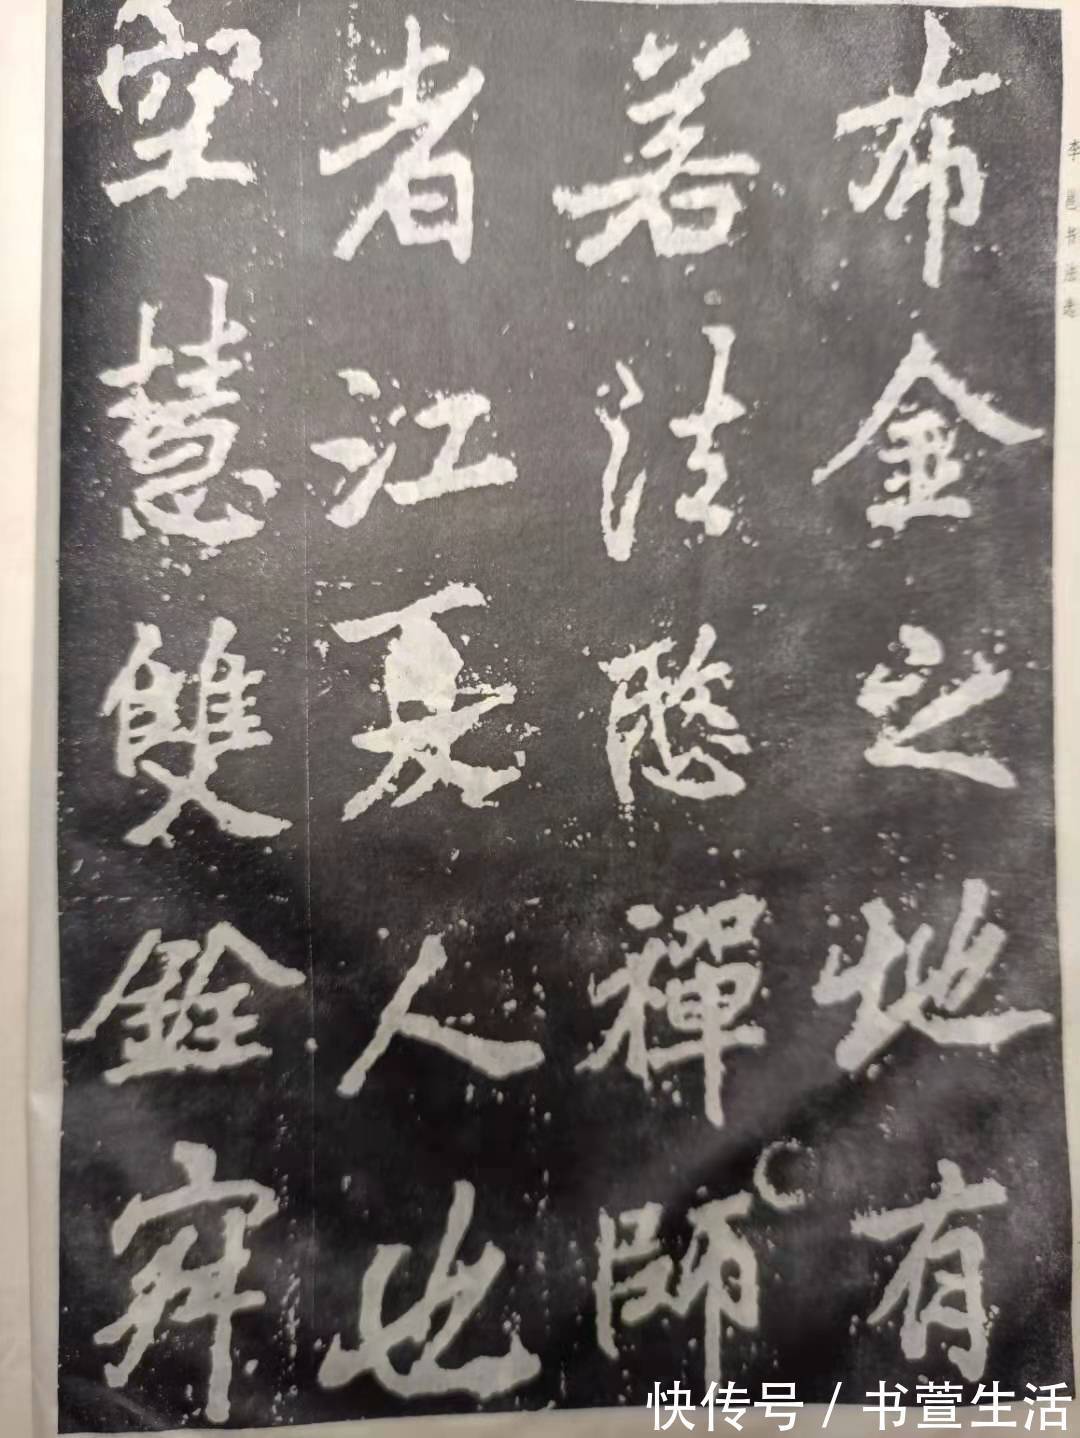 布金之地有
若法愍禪師
者江夏人也
空慧雙銓寂
李邕书法选
快传号 / 书萱生活